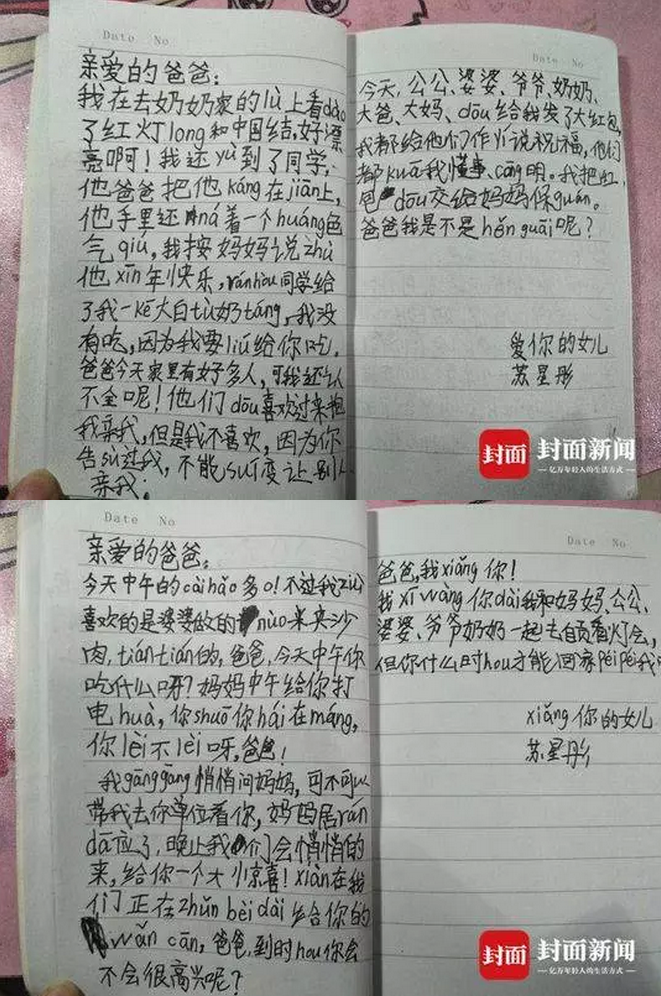 Date No
亲爱的爸爸:
我在去奶奶家的lù上看dào
了红灯long和中国结,好漂
亮啊!我还yù到了同学,
他爸爸把他káng在jiān上,
他手里还ná着一个huáng色
气qiú,我按妈妈说zhù
他xīn年快乐,ránhòu同学给
了我一kē大白tù奶táng,我没
有吃,因为我要liú给你吃,
爸爸今天家里有好多人,可我还认
不全呢!他们dōu喜欢过来抱
我亲我,但是我不喜欢,因为你
告sù过我,不能suí变让别人
亲我;
Date No
今天,公公、婆婆、爷爷、奶奶、
大爸、大妈、dōu给我发了大红包,
我都给他们作yī说祝福,他们
都kuā我懂事、cōng明。我把红
包dōu交给妈妈保guǎn。
爸爸我是不是hěn guāi呢?
爱你的女儿
苏星彤
封面 封面新闻
亿万年轻人的生活方式
Date No
亲爱的爸爸,
今天中午的cài hǎo多o!不过我zuì
喜欢的是婆婆做的nuò米夹沙
肉,tiántián的,爸爸,今天中午你
吃什么呀?妈妈中午给你打
电huà,你shuō你hái在máng,
你lèi不lèi呀,爸爸!
我gānggāng悄悄问妈妈,可不可以
带我去你单位看你,妈妈居rán
dā应了,晚上我们会悄悄的
来,给你一个大惊喜!xiàn在我
们正在zhǔn bèi dài给你的
wǎn cān,爸爸,到时hou你会
不会很高兴呢?
Date No
爸爸,我xiǎng你!
我xī wàng你dài我和妈妈、公公、
婆婆、爷爷奶奶一起去自贡看灯会,
但你什么时hou才能回家péi péi我
xiǎng你的女儿
苏星彤
封面 封面新闻
亿万年轻人的生活方式